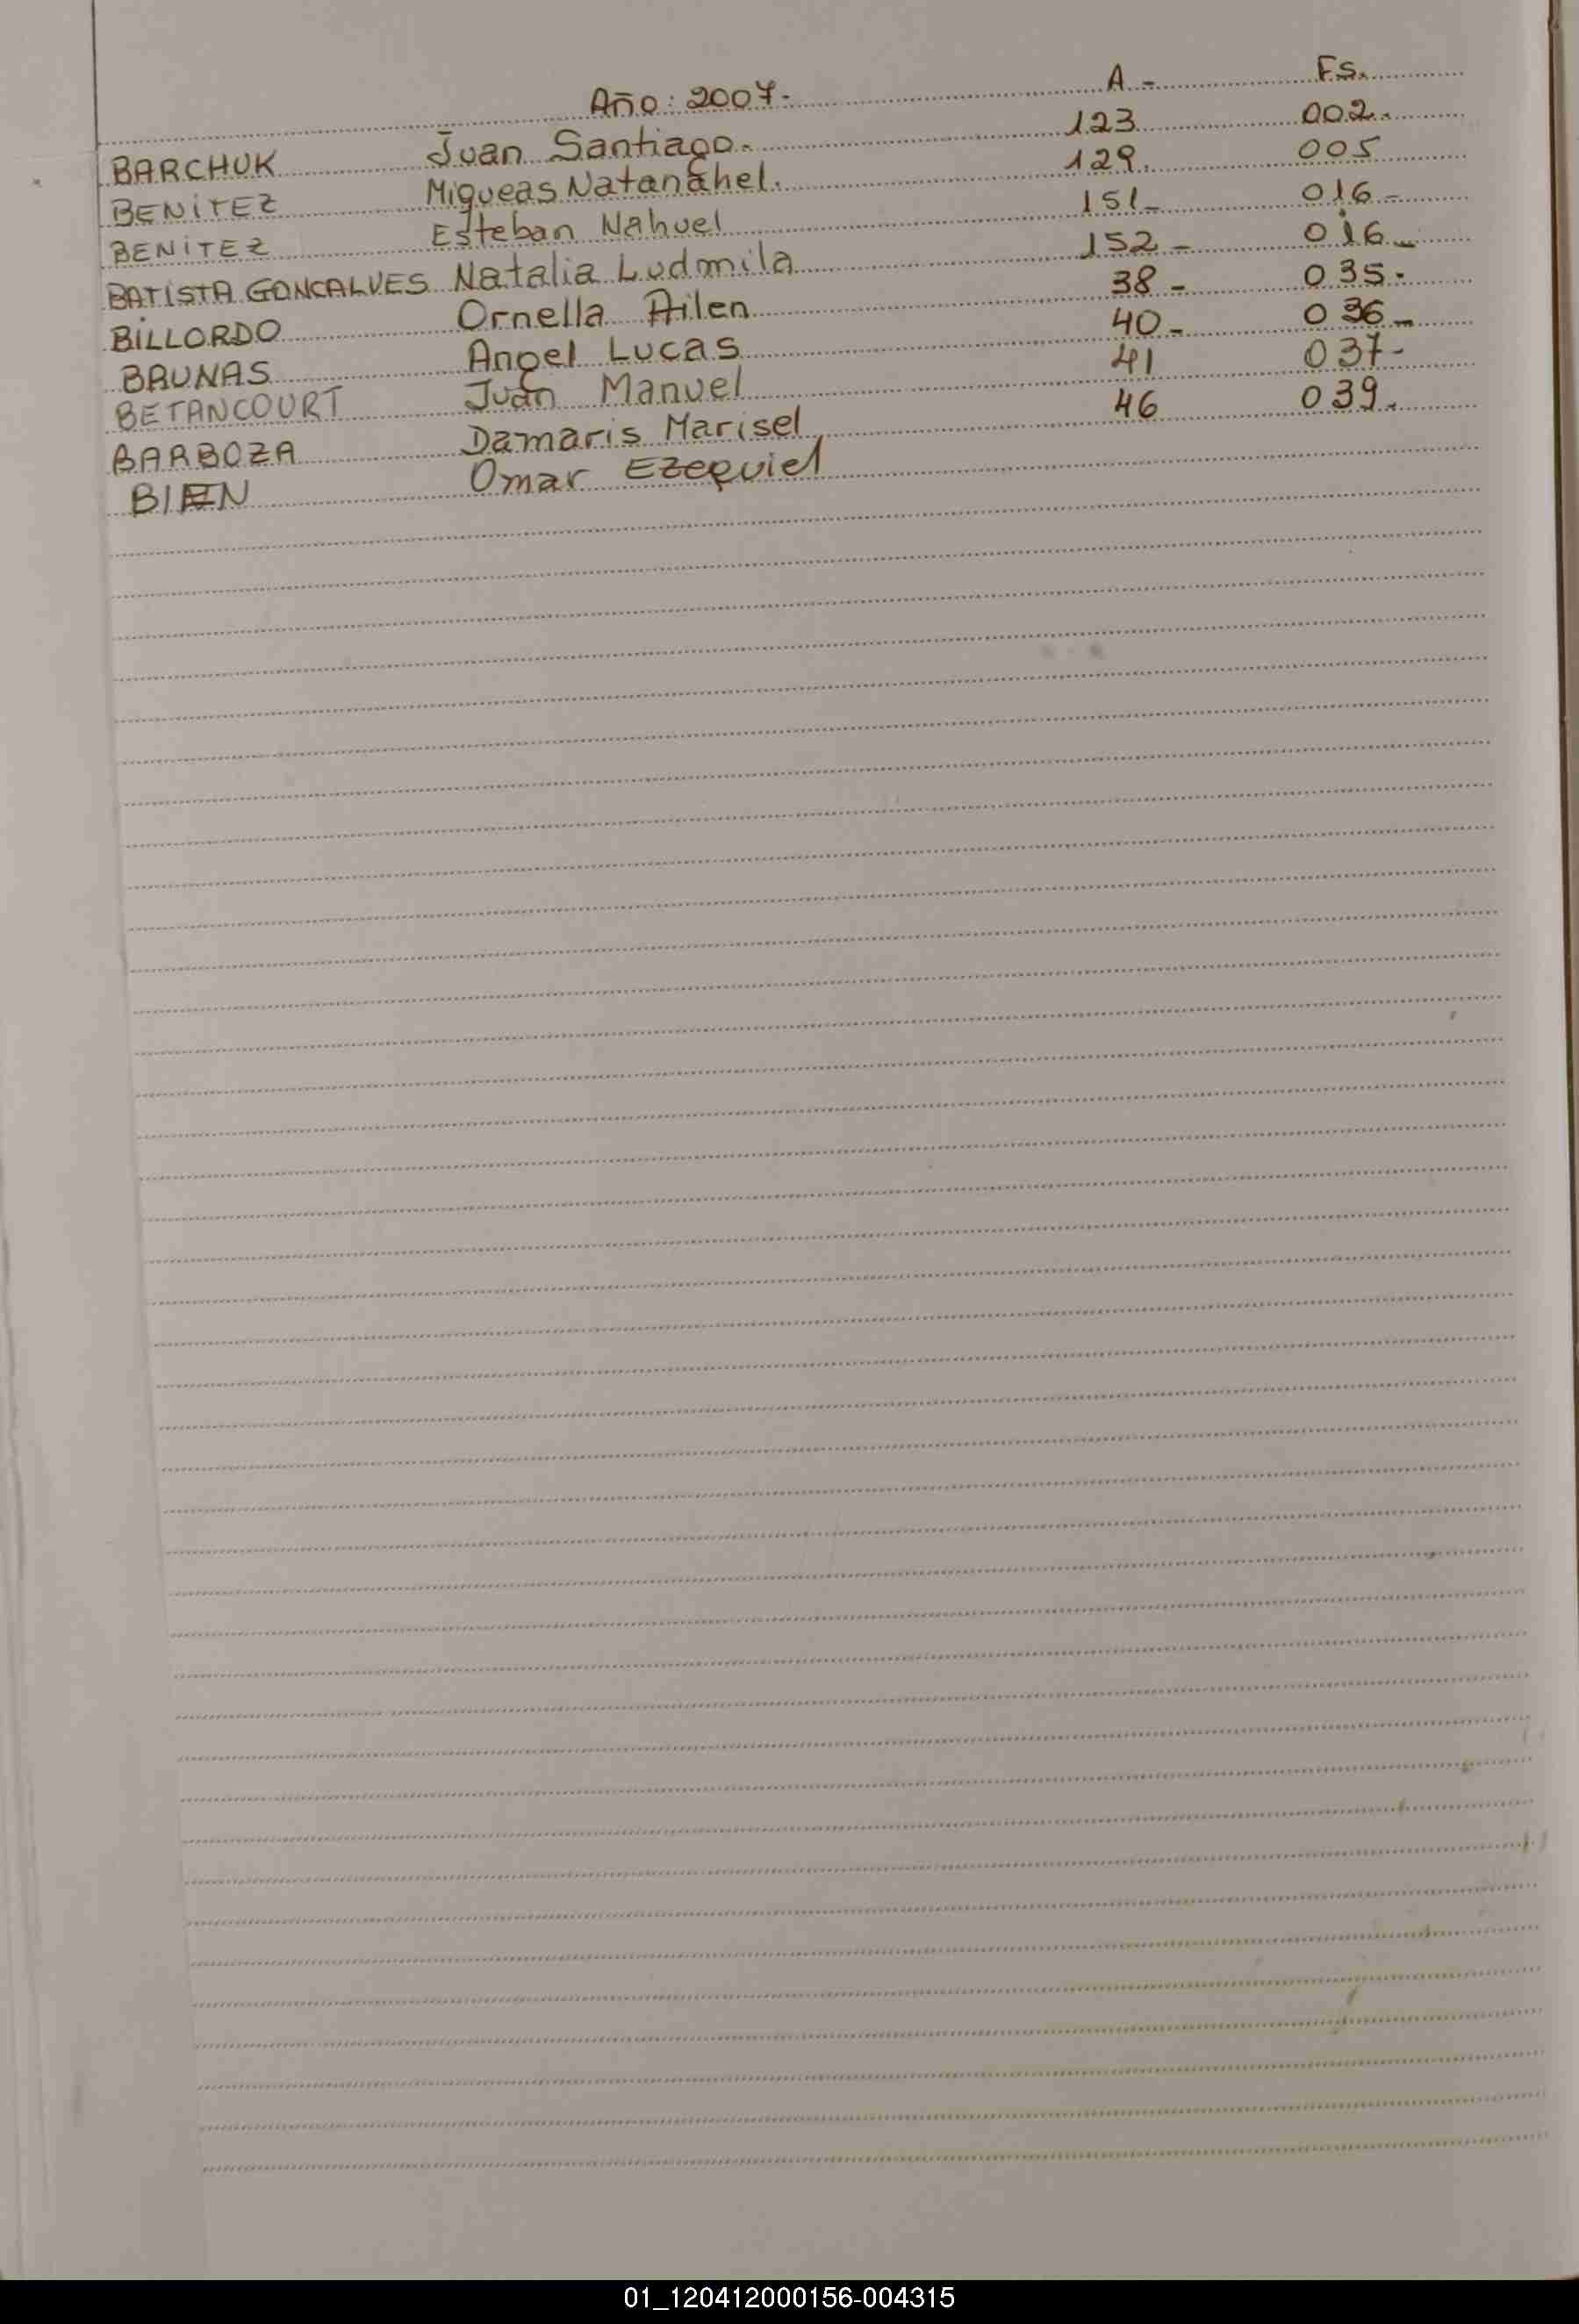 Año: 2007- A - Fs.
BARCHUK Juan Santiago. 123 002.
BENITEZ Miqueas Natanahel. 129. 005
BENITEZ Esteban Nahuel 151- 016-
BATISTA GONCALVES Natalia Ludmila 152- 016-
BILLORDO Ornella Ailen 38- 035.
BAUNAS Angel Lucas 40- 036-
BETANCOURT Juan Manuel 41 037-
BARBOZA Damaris Marisel 46 039.
BIEN Omar Ezequiel
01_120412000156-004315